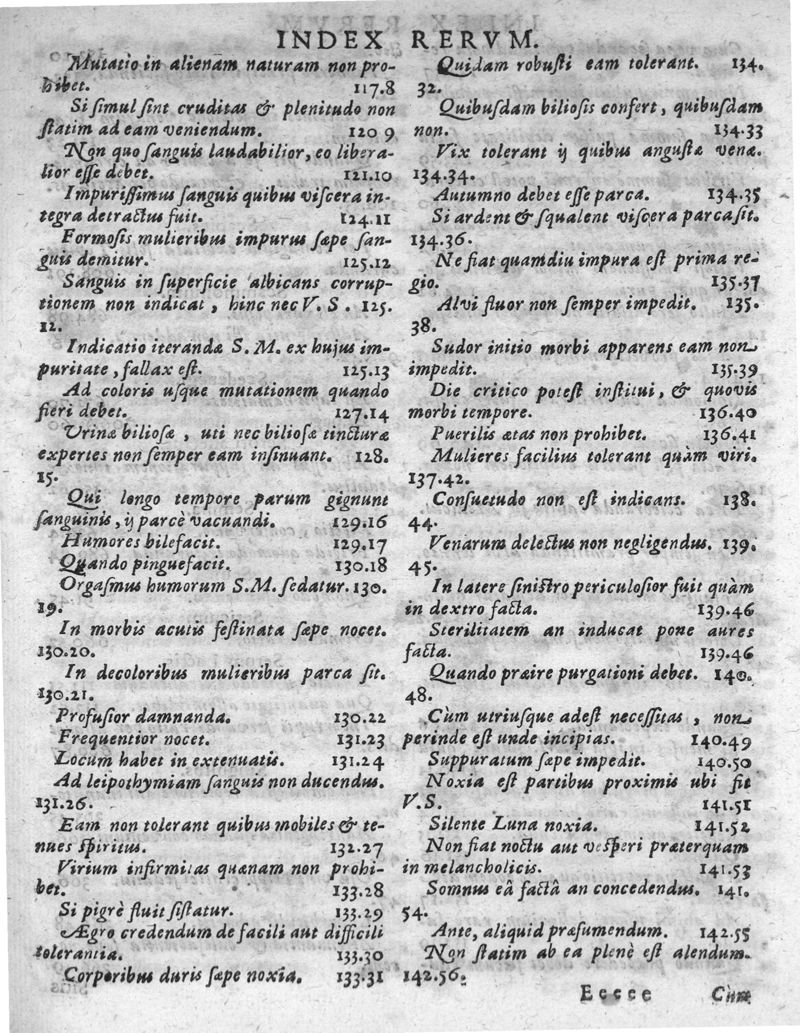 INDEX RERVM.
Mutatio in alienam naturam non pro-
hibet. 117.8
Si simul sint cruditas & plenitudo non
statim ad eam veniendum. 120 9
Non quo sanguis laudabilior, eo libera-
lior esse debet. 121.10
Impurissimus sanguis quibus viscera in-
tegra detractus fuit. 124.11
Formosis mulieribus impurus sæpe san-
guis demitur. 125.12
Sanguis in superficie albicans corrup-
tionem non indicat, hinc nec V. S. 125.
12.
Indicatio iterandæ S. M. ex hujus im-
puritate, fallax est. 125.13
Ad coloris usque mutationem quando
fieri debet. 127.14
Urinæ biliosæ, uti nec biliosæ tincturæ
expertes non semper eam insinuant. 128.
15.
Qui longo tempore parum gignunt
sanguinis, ij parcè vacuandi. 129.16
Humores bilefacit. 129.17
Quando pinguefacit. 130.18
Orgasmus humorum S.M. sedatur. 130.
19.
In morbis acutis festinata sæpe nocet.
130.20.
In decoloribus mulieribus parca sit.
130.21.
Profusior damnanda. 130.22
Frequentior nocet. 131.23
Locum habet in extenuatis. 131.24
Ad leipothymiam sanguis non ducendus.
131.26.
Eam non tolerant quibus mobiles & te-
nues spiritus. 132.27
Virium infirmitas quænam non prohi-
bet. 133.28
Si pigrè fluit sistatur. 133.29
Ægro credendum de facili aut difficili
tolerantia. 133.30
Corporibus duris sæpe noxia. 133.31
Quidam robusti eam tolerant. 134.
32.
Quibusdam biliosis confert, quibusdam
non. 134.33
Vix tolerant ij quibus angustæ venæ.
134.34.
Autumno debet esse parca. 134.35
Si ardent & squalent viscera parca sit.
134.36.
Ne fiat quamdiu impura est prima re-
gio. 135.37
Alvi fluor non semper impedit. 135.
38.
Sudor initio morbi apparens eam non
impedit. 135.39
Die critico potest institui, & quovis
morbi tempore. 136.40
Puerilis ætas non prohibet. 136.41
Mulieres facilius tolerant quàm viri.
137.42.
Consuetudo non est indicans. 138.
44.
Venarum delectus non negligendus. 139.
45.
In latere sinistro periculosior fuit quàm
in dextro facta. 139.46
Sterilitatem an inducat pone aures
facta. 139.46
Quando præire purgationi debet. 140.
48.
Cùm utriusque adest necessitas, non
perinde est unde incipias. 140.49
Suppuratum sæpe impedit. 140.50
Noxia est partibus proximis ubi fit
V.S. 141.51
Silente Luna noxia. 141.52
Non fiat noctu aut vesperi præterquam
in melancholicis. 141.53
Somnus eâ factâ an concedendus. 141.
54.
Ante, aliquid præsumendum. 142.55
Non statim ab ea plenè est alendum.
142.56.
Eeeee Cùm